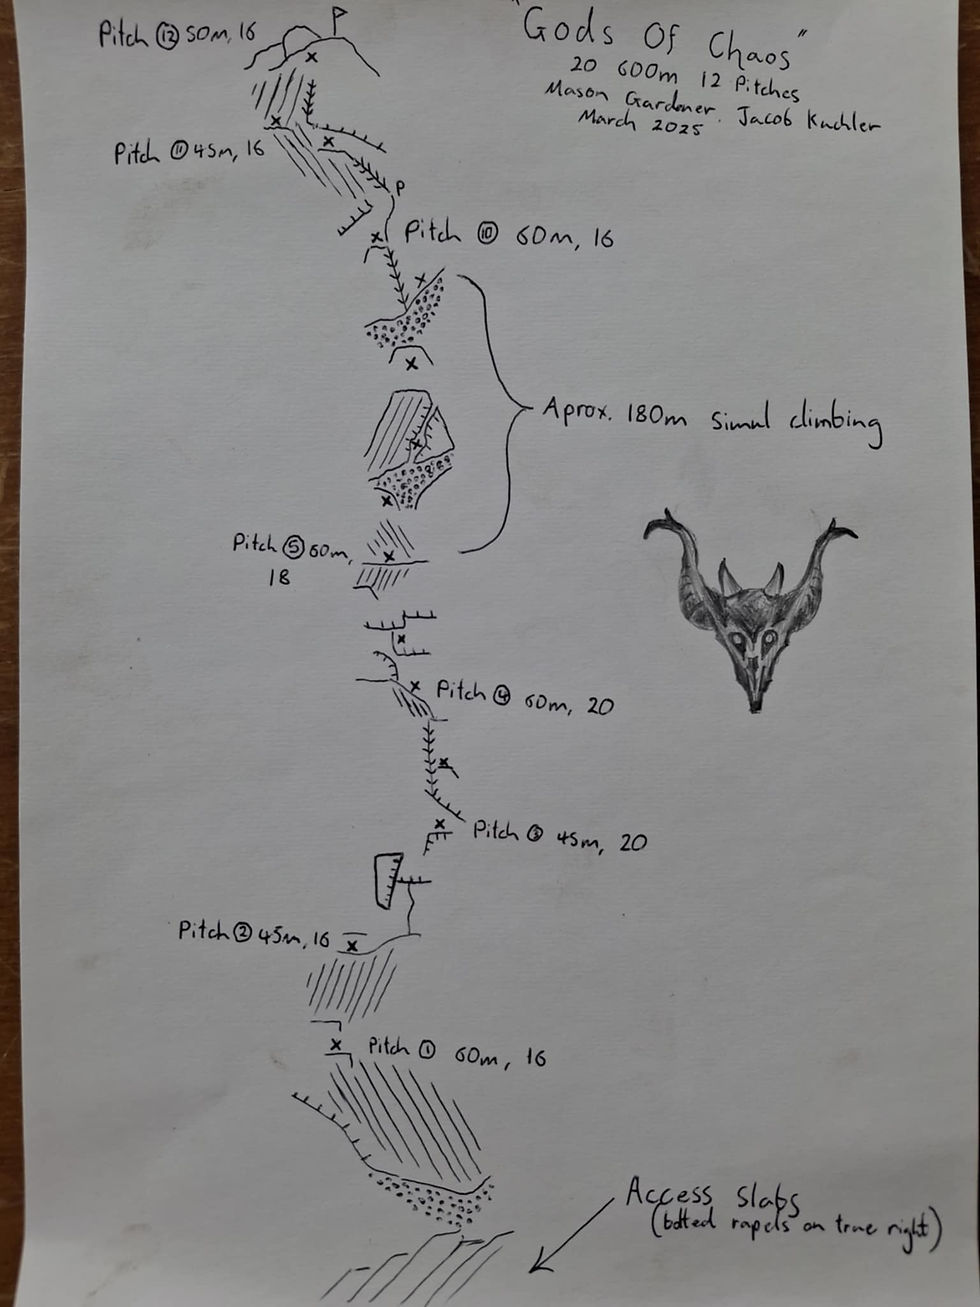 "Gods Of Chaos"
20 600m 12 Pitches
Mason Gardner. Jacob Kuchler
March 2025
Pitch ⑫ 50m, 16
Pitch ⑪ 45m, 16
P
Pitch ⑩ 60m, 16
Aprox. 180m simul climbing
Pitch ⑤ 60m,
18
Pitch ④ 60m, 20
Pitch ③ 45m, 20
Pitch ② 45m, 16
Pitch ① 60m, 16
Access slabs
(bolted rapels on true right)